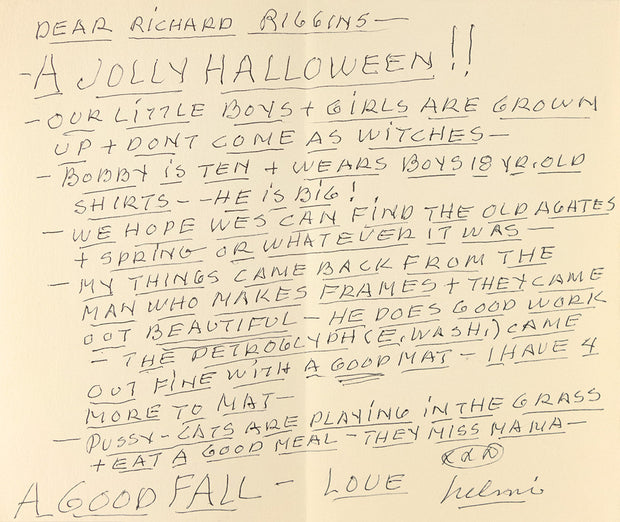 DEAR RICHARD RIGGINS—
-A JOLLY HALLOWEEN!!
-OUR LITTLE BOYS + GIRLS ARE GROWN
UP + DONT COME AS WITCHES—
- BOBBY IS TEN + WEARS BOYS 18 YR. OLD
SHIRTS- -HE IS BIG!
- WE HOPE WES CAN FIND THE OLD AGATES
+ SPRING OR WHATEVER IT WAS—
- MY THINGS CAME BACK FROM THE
MAN WHO MAKES FRAMES + THEY CAME
OUT BEAUTIFUL- HE DOES GOOD WORK
- THE PETROGLYPH (E. WASH.) CAME
OUT FINE WITH A GOOD MAT- I HAVE 4
MORE TO MAT-
- PUSSY-CATS ARE PLAYING IN THE GRASS
+ EAT A GOOD MEAL -THEY MISS MAMA-
A GOOD FALL- LOVE helmi